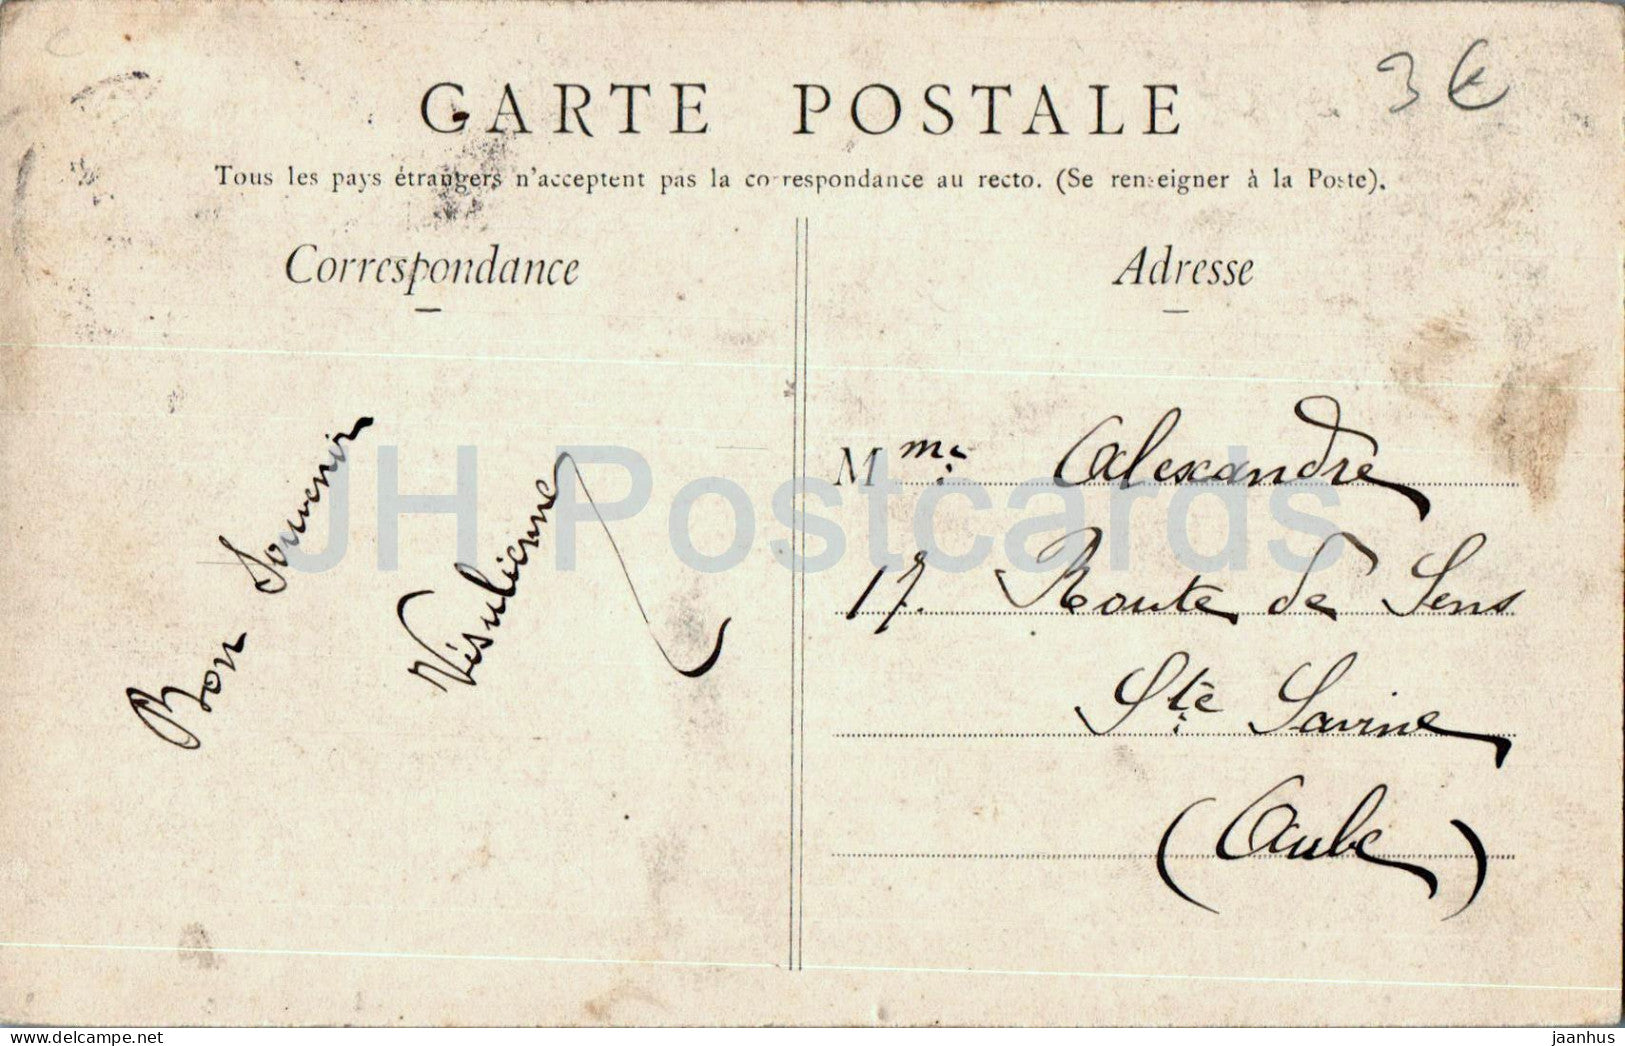 3 €
CARTE POSTALE
Tous les pays étrangers n'acceptent pas la correspondance au recto. (Se renseigner à la Poste).
Correspondance
Adresse
Bon Souvenir
Vésulienne
Mme. Alexandre
17. Route de Sens
Ste Savine
(Aube)
JH Postcards
www.delcampe.net
jaanhus